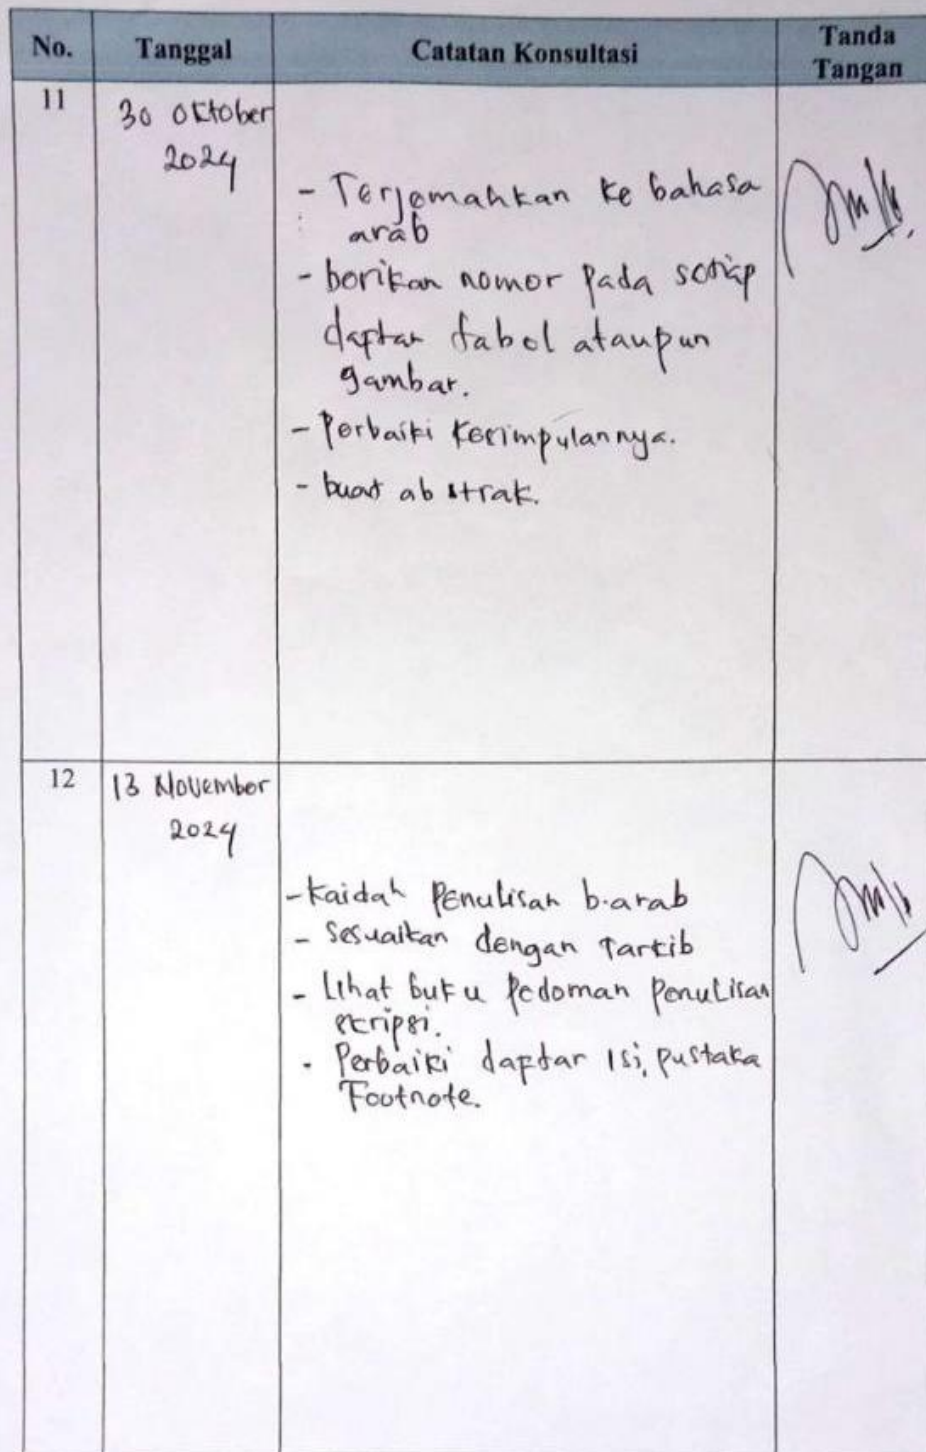 No. Tanggal Catatan Konsultasi Tanda Tangan
11 30 Oktober
2024
- Terjemahkan ke bahasa
arab
- berikan nomor pada setiap
daftar tabel ataupun
gambar.
- Perbaiki Kesimpulannya.
- buat abstrak.
12 13 November
2024
- Kaidah Penulisan b.arab
- Sesuaikan dengan Tartib
- Lihat buku Pedoman Penulisan
skripsi.
- Perbaiki daftar isi, pustaka
Footnote.